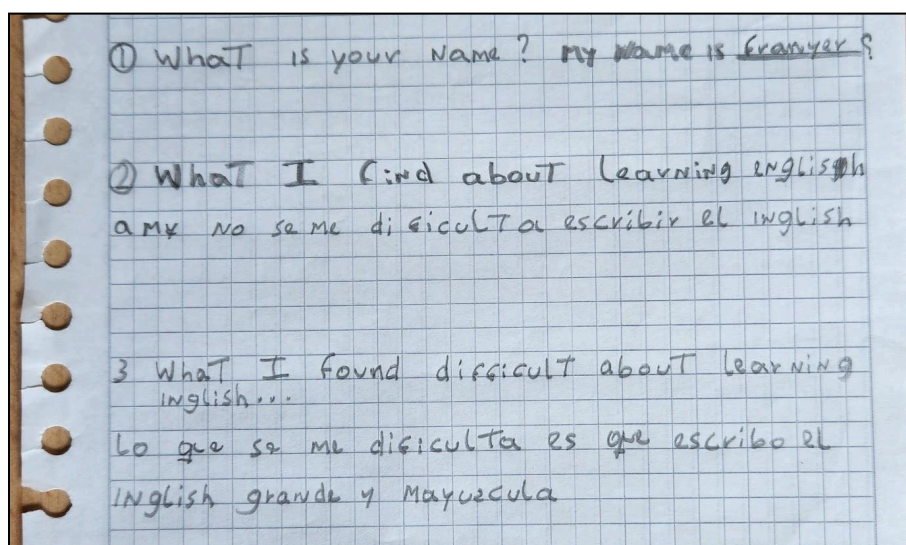 ① What is your Name? My Name is franyer?
② What I find about learning english
a my No se me dificulta escribir el inglish
3 What I found difficult about learning
inglish...
Lo que se me dificulta es que escribo el
inglish grande y Mayuzcula